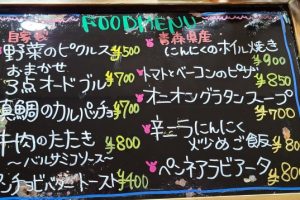 FOOD MENU
自家製
野菜のピクルス ¥500
おまかせ
3点オードブル ¥700
真鯛のカルパッチョ ¥700
牛肉のたたき ¥800
〜バルサミコソース〜
ンチョビバタートースト ¥400
青森県産
にんにくのオイル焼き ¥900
トマトとベーコンのピザ ¥850
オニオングラタンスープ ¥700
辛ニラにんにく
めご飯 ¥80
ペンネアラビアータ ¥80